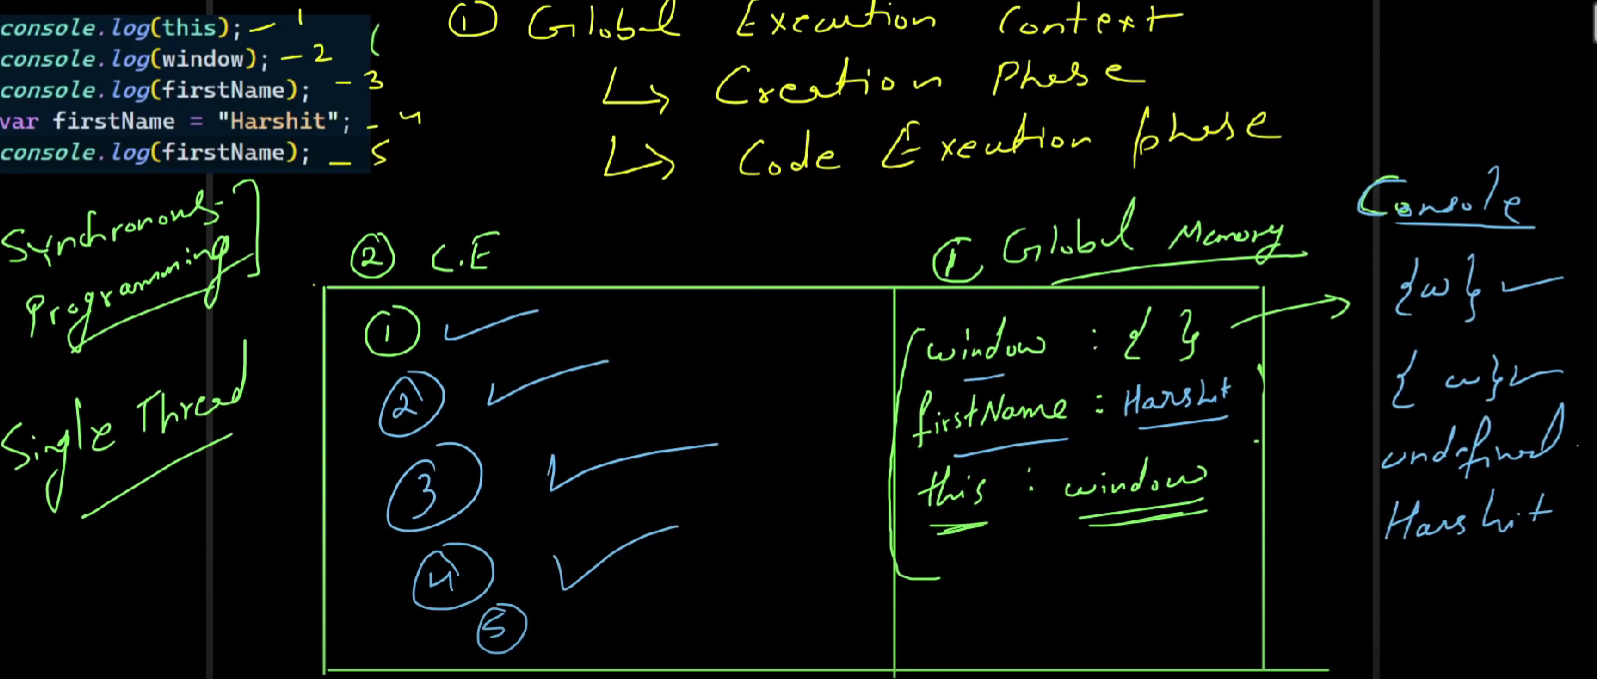 console.log(this); - 1
console.log(window); - 2
console.log(firstName); - 3
var firstName = "Harshit"; - 4
console.log(firstName); - 5
① Global Execution Context
↳ Creation Phase
↳ Code Execution phase
Synchronous
Programming
Single Thread
② C.E
① Global Memory
①
②
③
④
⑤
window : { }
firstName : Harshit
this : window
Console
{w}
{w}
undefined
Harshit